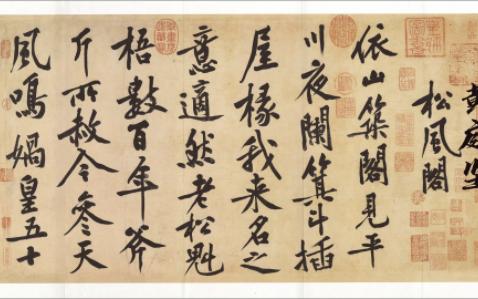 黄庭坚
松風閣
依山築閣見平
川夜闌箕斗插
屋椽我来名之
意適然老松魁
梧數百年斧
斤所赦今參天
風鳴媧皇五十